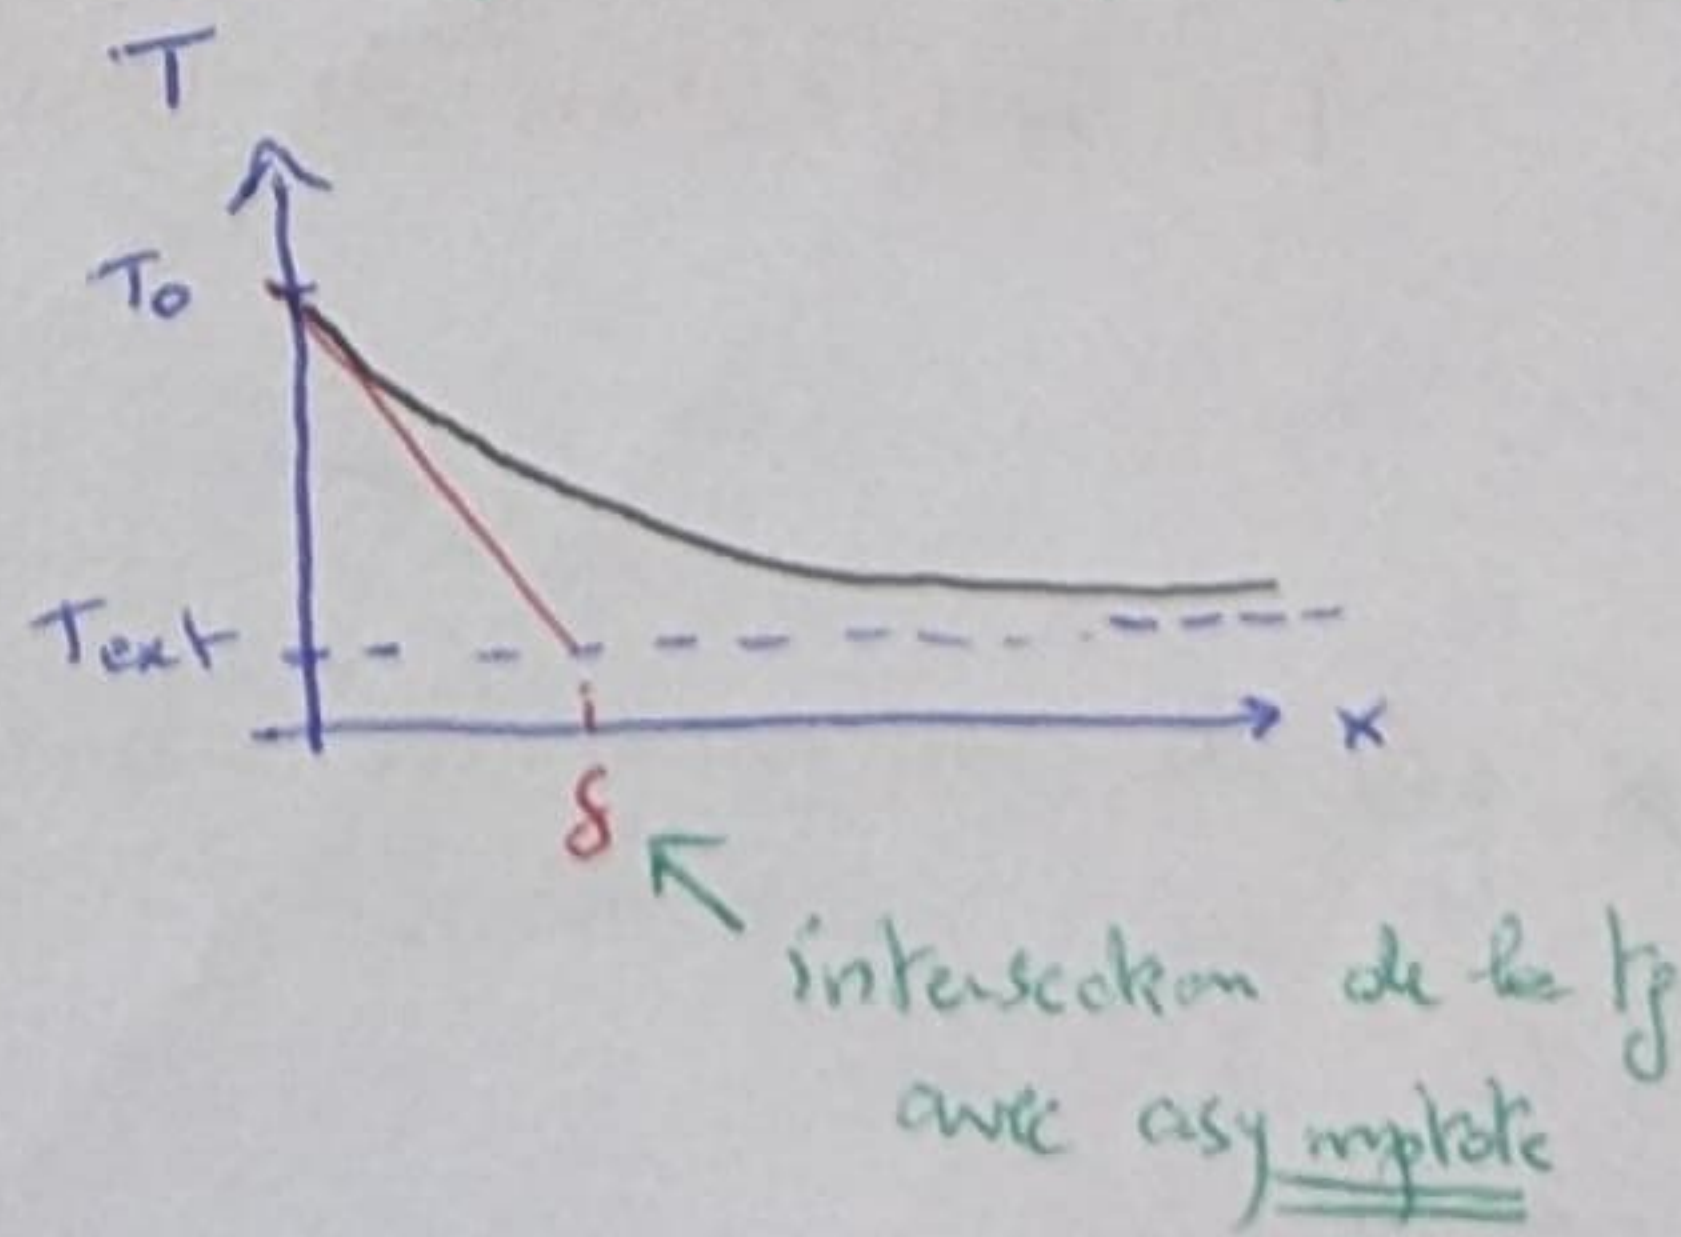 T
T₀
Text
x
δ
intersection de la tg
avec asymptote